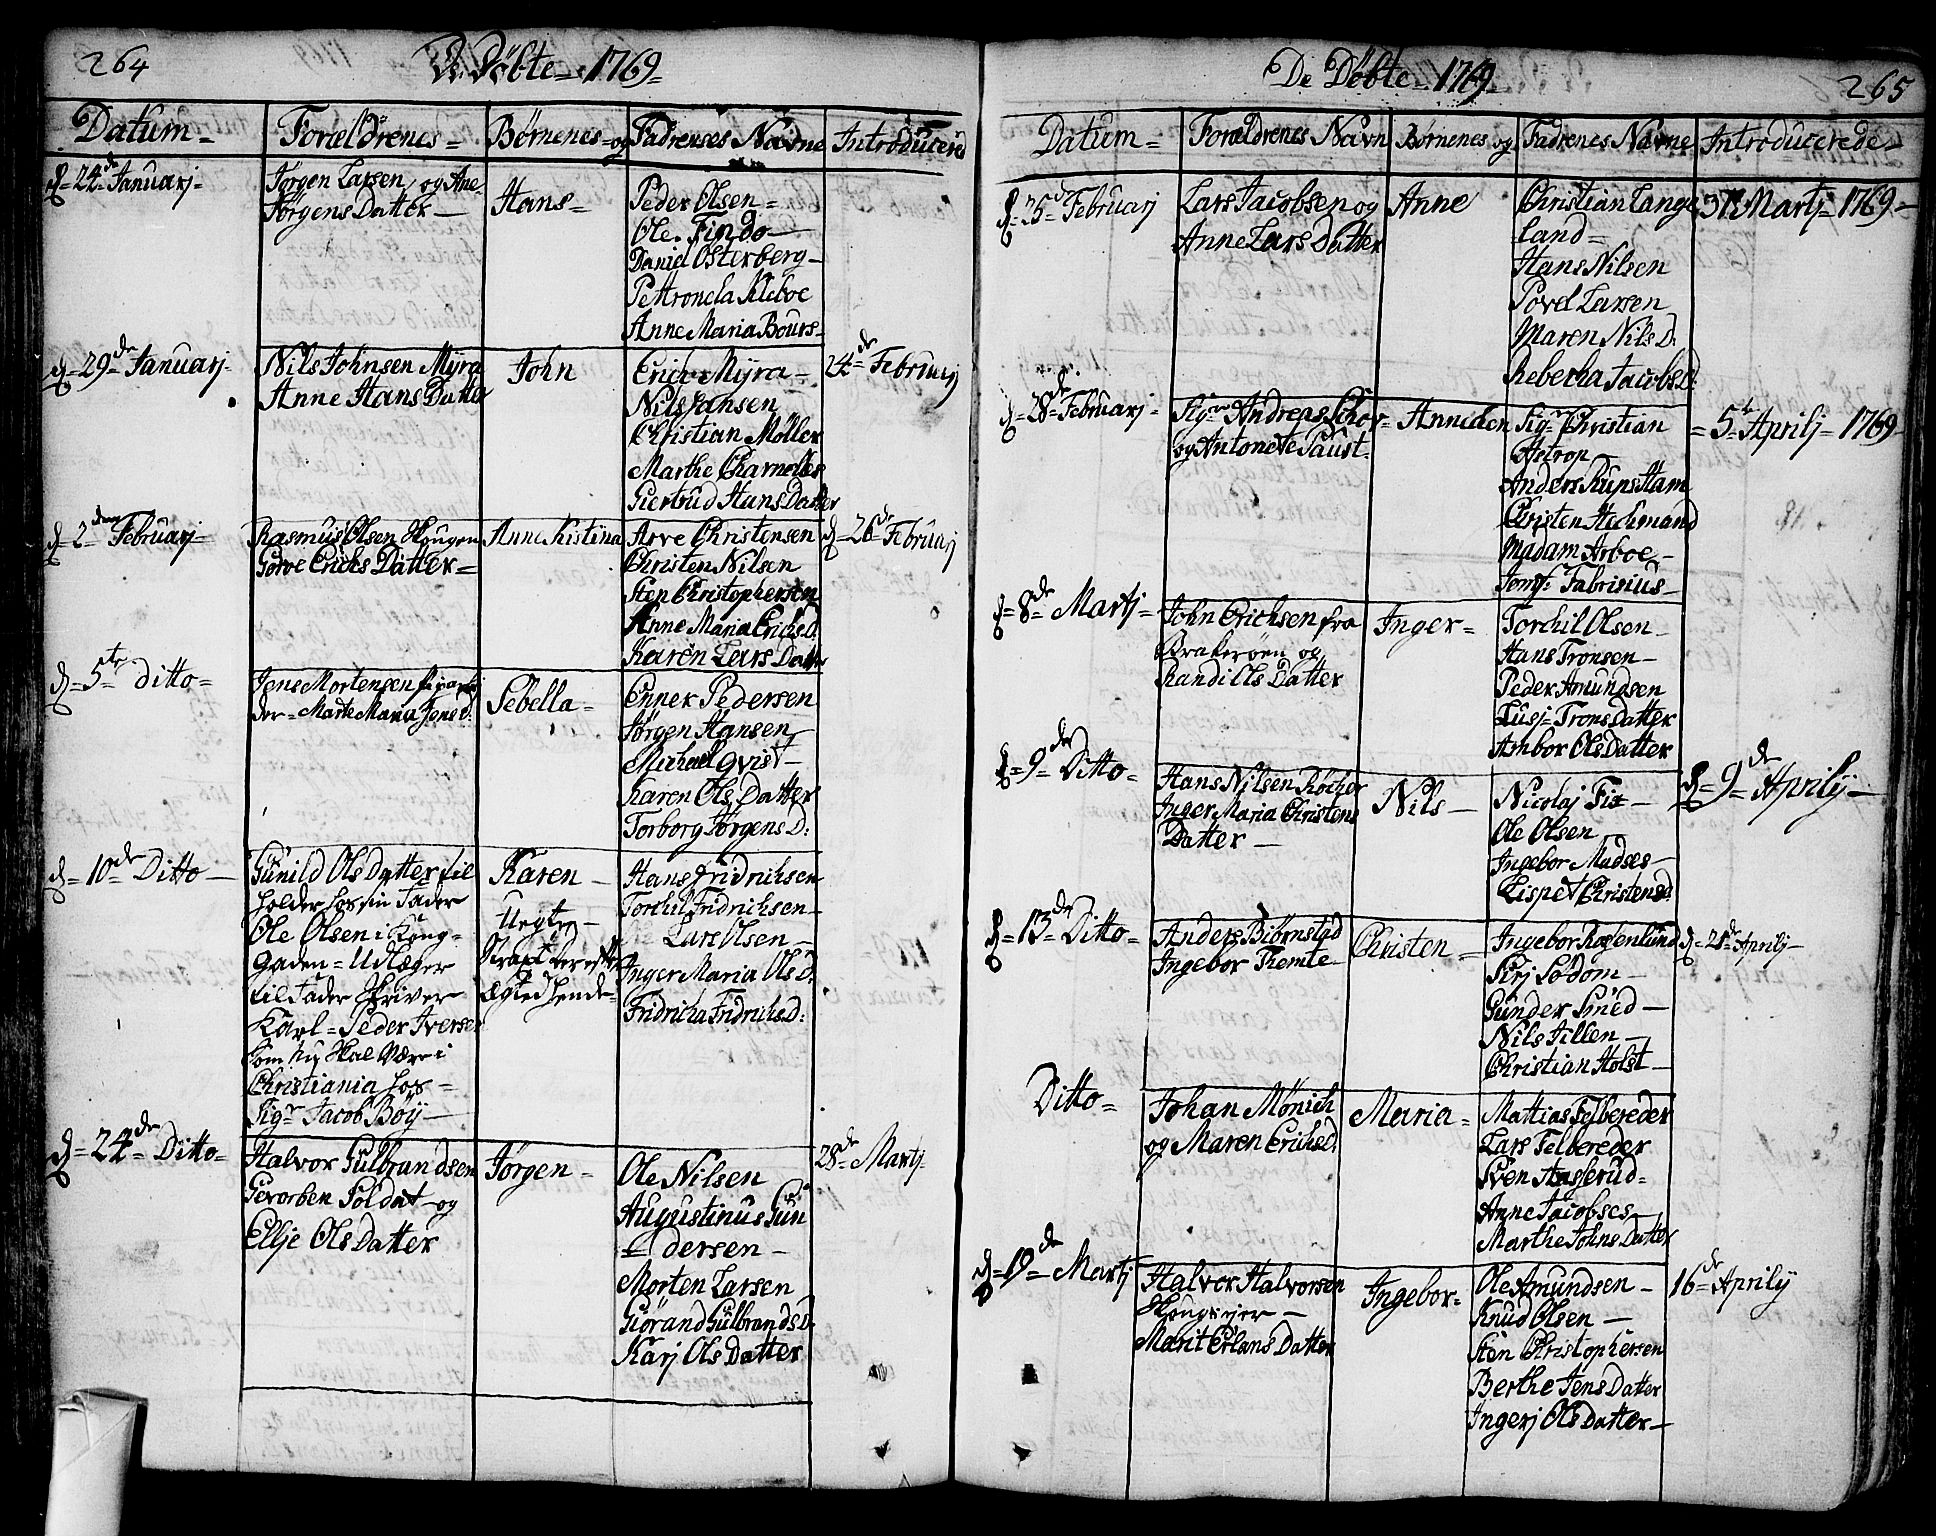 264
De Döbte = 1769 =
Datum =
Forældrenes =
Börnenes = og
Fadrenes Navne
Introducered
d = 24de Januarj =
Jørgen Larsen, og Ane
Jørgens Datter —
Hans =
Peder Olsen =
Ole Findo —
Daniel Osterberg —
Pettronela Kleboe
Anne Maria Bours =
d = 29de Januarj =
Nils Johnsen Myra
Anne Hans Datter
John
Erich Myra —
Nils Jansen
Christian Möller
Marthe Charnelles
Giertrud Hans Datter
24de Februarj
d = 2den Februarj =
Rasmus Olsen Hougen
Gorve Erichs Datter =
Anne Kistina
Arve Christensen
Christen Nilsen
Sten Christophersen
Anne Maria Erichs D:
Karen Lars Datter
d = 26de Februarj
d = 5te ditto =
Jens Mortensen
der = Marte Maria Jens d:
Sebella =
Enner Pedersen
Jørgen Hansen
Michael Qvist —
Karen Ols Datter
Torborg Jørgens D:
d = 10de Ditto —
Gunild Ols Datter til
holder hos sin Fader
Ole Olsen i Kong =
gaden = Udlæger
til Fader Skriver
Karl = Peder Iversen
som nu skal være i
Christiania hos =
Sigr Jacob Böy —
Karen —
Uegte —
Strax derefter
Ægted hende =
Hans Fridrichsen
Torchil Fridrichsen —
Lars Olsen —
Inger Maria Ols D:
Fridricha Fridrichs D:
d = 24de Ditto =
Halvor Gulbrandsen
Gevorben Soldat — og
Ellje Ols Datter
Jørgen =
Ole Nilsen
Augustinus Gun
= dersen —
Morten Larsen
Giörand Gulbrands D:
Karj Ols Datter
28de Martj =
De Döbte = 1769
265
Datum =
Forældrenes Navn
Børnenes og
Fadrenes Navne
Introducerede =
d = 25de Februarj
Lars Jacobsen og
Anne Lars Datter
Anne
Christian Lange
land =
Hans Nilsen
Povel Larsen
Maren Nils D:
Rebecha Jacobs D:
Martj = 1769 —
d = 28de Februarj =
Sigr Andreas Schov =
og Antonete Faust =
Anneken
Sigr Christian
Astrop —
Anders Rups Ham
Christen Hechmand
Madam Arboe —
Jomf: Fabrisius —
= 5te Aprilj = 1769 —
d = 8de Martj =
John Erichsen fra
Brakerøen og
Randi Ils Datter
Inger =
Torchil Olsen —
Hans Tronsen —
Peder Amundsen
Lusj = Trons Datter
Ambor Ols Datter
d = 9de Ditto =
Hans Nilsen Röcher
Inger Maria Christens
Datter —
Nils —
Nicolaj Fix —
Ole Olsen
Ingebor Madses —
Lispet Christens d:
d = 9de Aprilij —
d = 13de Ditto =
Anders Biörnstad
Ingebor Remte =
Christen =
Ingebor Rosenlund
Sirj Södom —
Gunder Smed —
Nils Tillen —
Christian Holst —
d = 21de Aprilj —
Ditto =
Johan Mönich
og Maren Erichs d:
Maria =
Mattias Felbereder
Lars Felbereder
Sven Haserud =
Anne Jacobses —
Marthe Johns Datter
d = 19de Martj
Halvor Halvorsen
Hougsejer —
Marit Erlans Datter
Ingebor =
Ole Amundsen —
Knud Olsen —
Sten Christophersen
Berthe Jens Datter
Ingerj Ols Datter —
16de Aprilij